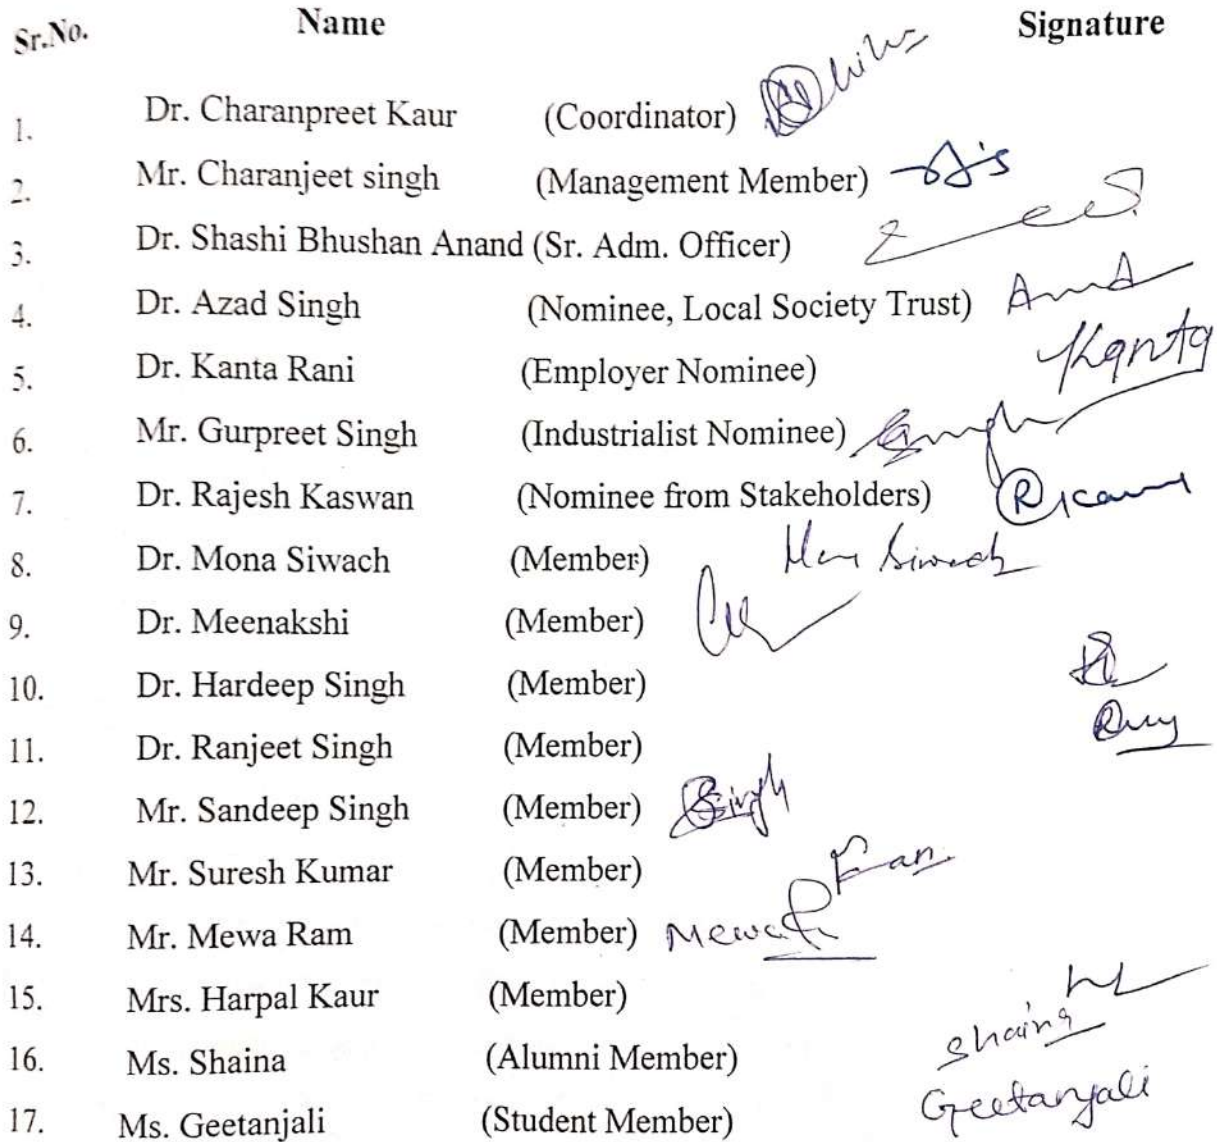 Sr.No. Name Signature
1. Dr. Charanpreet Kaur (Coordinator)
2. Mr. Charanjeet singh (Management Member)
3. Dr. Shashi Bhushan Anand (Sr. Adm. Officer)
4. Dr. Azad Singh (Nominee, Local Society Trust)
5. Dr. Kanta Rani (Employer Nominee) Kanta
6. Mr. Gurpreet Singh (Industrialist Nominee)
7. Dr. Rajesh Kaswan (Nominee from Stakeholders)
8. Dr. Mona Siwach (Member) Siwach
9. Dr. Meenakshi (Member)
10. Dr. Hardeep Singh (Member)
11. Dr. Ranjeet Singh (Member)
12. Mr. Sandeep Singh (Member) Singh
13. Mr. Suresh Kumar (Member)
14. Mr. Mewa Ram (Member) Mewa
15. Mrs. Harpal Kaur (Member)
16. Ms. Shaina (Alumni Member) Shaina
17. Ms. Geetanjali (Student Member) Geetanjali